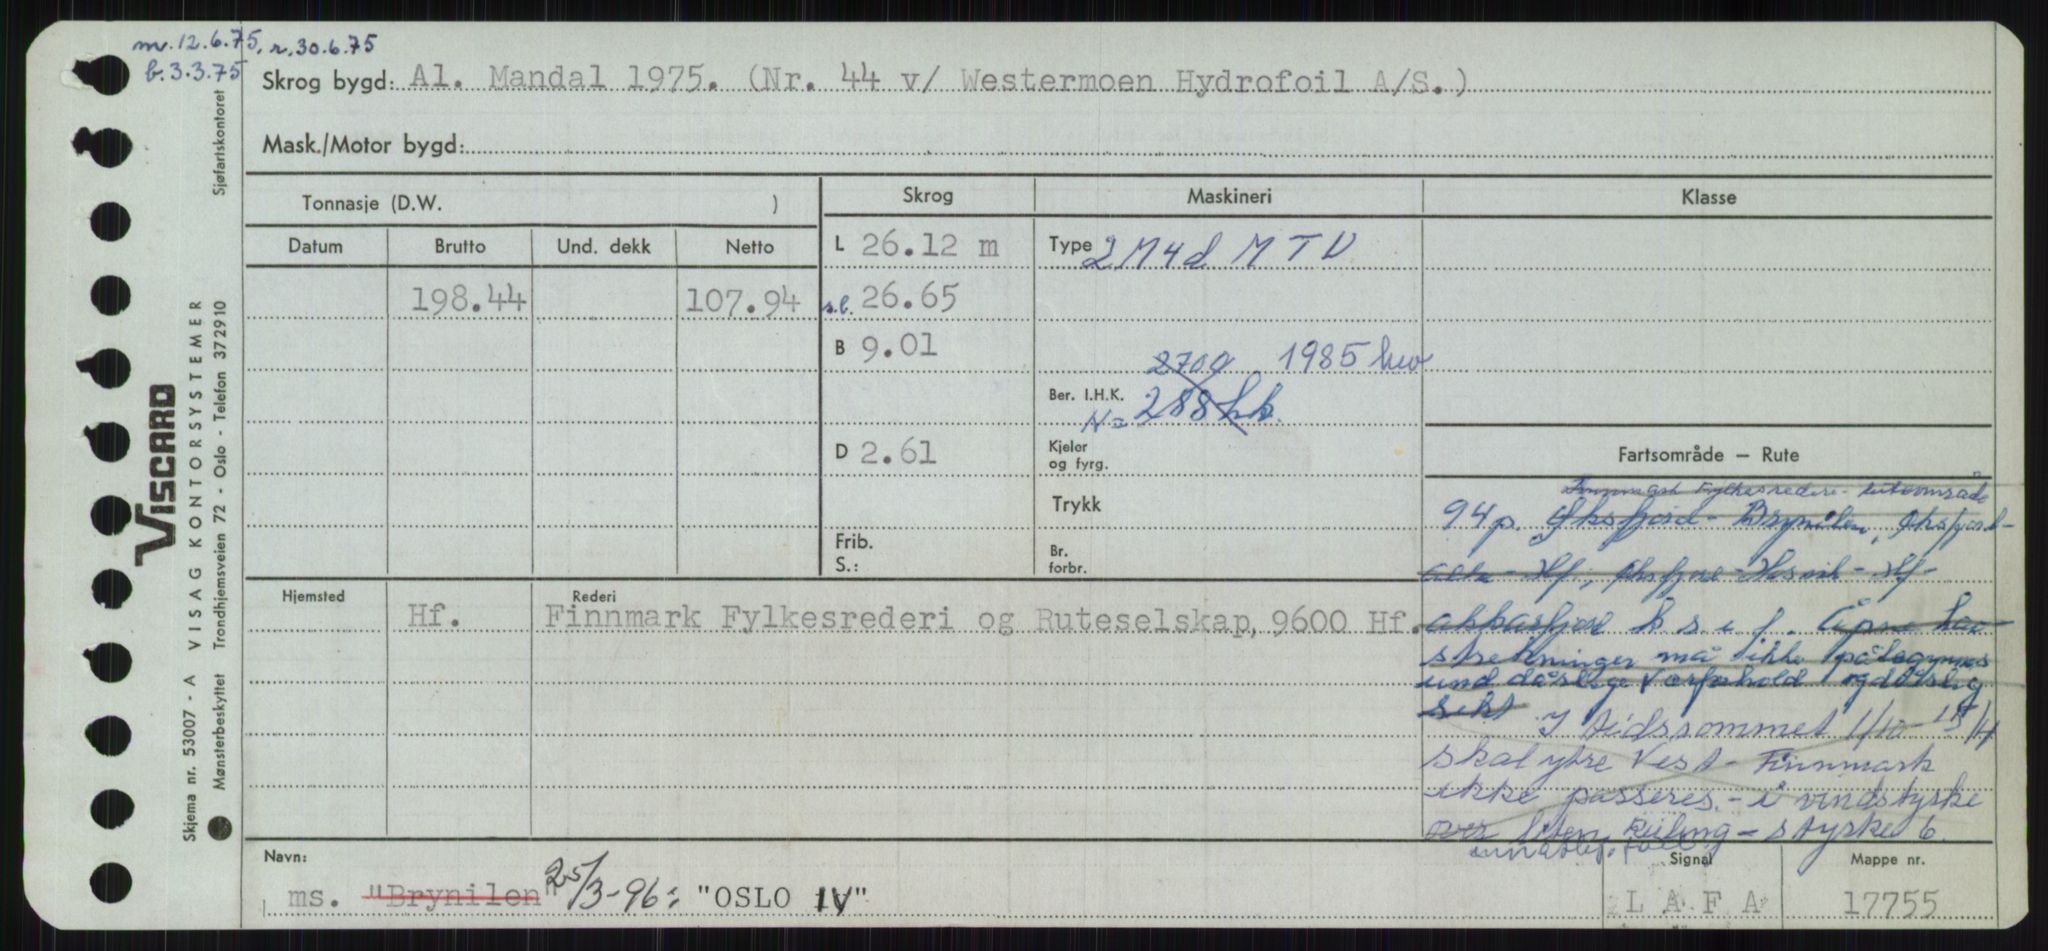 m. 12.6.75, r. 30.6.75
b. 3.3.75
Skrog bygd: Al. Mandal 1975. (Nr. 44 v/ Westermoen Hydrofoil A/S.)
Mask./Motor bygd:
Tonnasje (D.W. )
Skrog
Maskineri
Klasse
Datum Brutto Und. dekk Netto
L 26.12 m
Type 2 M4d MTU
198.44 107.94
s.l. 26.65
B 9.01
2700 1985 kw
Ber. I.H.K.
N= 288 hk.
D 2.61
Kjeler
og fyrg.
Trykk
Frib.
S.:
Br.
forbr.
Fartsområde — Rute
Finnmark Fylkesrederi
94 p. Øksfjord - Brynilen, Øksfjord-
Hf., Øksfjord - Hasvik - Hf -
k s. i f. Åpne hav
strekninger må ikke
under dårlige Værforhold og dårlig
sikt. I tidsrommet 1/10 - 15/4
skal ytre Vest - Finnmark
ikke passeres. - i vindstyrke
over liten kuling - styrke 6.
Hjemsted Rederi
Hf. Finnmark Fylkesrederi og Ruteselskap, 9600 Hf.
Navn:
ms. "Brynilen" 25/3-96: "OSLO IV"
Signal
L A F A
Mappe nr.
17755
VISCARD
VISAG KONTORSYSTEMER
Skjema nr. 53007 - A
Mønsterbeskyttet
Trondhjemsveien 72 - Oslo - Telefon 372910
Sjøfartskontoret